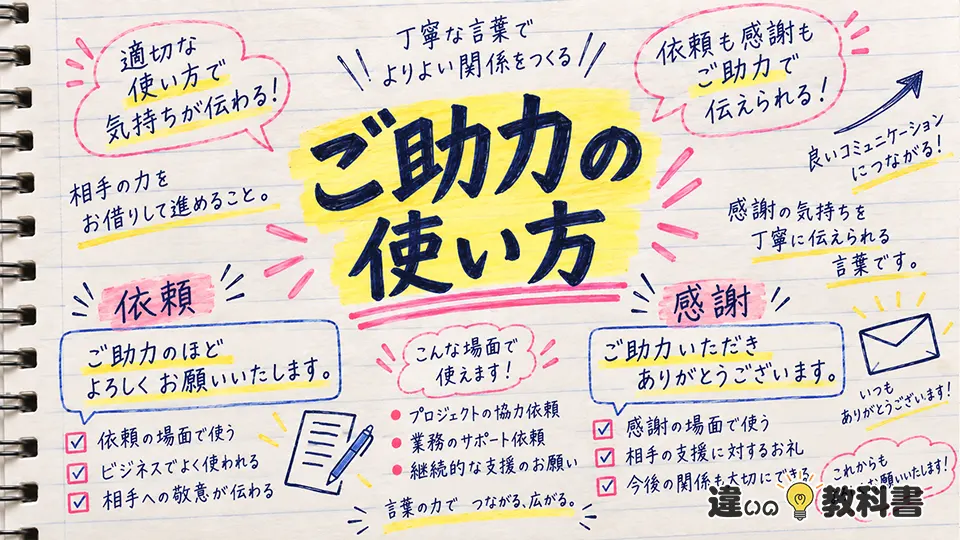 適切な
使い方で
気持ちが伝わる!
丁寧な言葉で
よりよい関係をつくる
依頼も感謝も
ご助力で
伝えられる!
良いコミュニケーション
につながる!
ご助力の
使い方
相手の力を
お借りして進めること。
感謝の気持ちを
丁寧に伝えられる
言葉です。
依頼
ご助力のほど
よろしくお願いいたします。
依頼の場面で使う
ビジネスでよく使われる
相手への敬意が伝わる
こんな場面で
使えます!
プロジェクトの協力依頼
業務のサポート依頼
継続的な支援のお願い
言葉の力で つながる、広がる。
感謝
ご助力いただき
ありがとうございます。
感謝の場面で使う
相手の支援に対するお礼
今後の関係も大切にできる
いつも
ありがとうございます!
これからも
お願いいたします!
違いの教科書